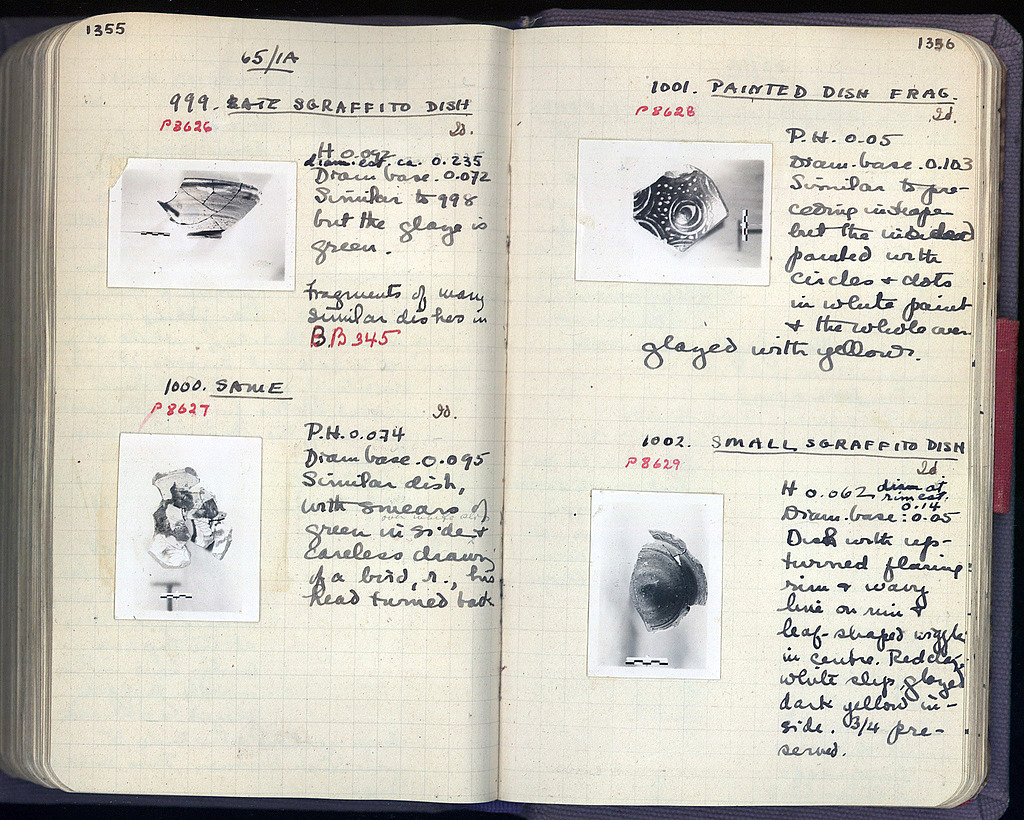 1355
65/1A
999. LATE SGRAFFITO DISH
P8626
H 0.092
diam. est. ca. 0.235
Diam base. 0.072
Similar to 998
but the glaze is
green.
Fragments of many
similar dishes in
B.B 345
1000. SAME
P8627
P.H. 0.074
Diam base. 0.095
Similar dish,
with smears of
over white slip
green inside &
careless drawing
of a bird, r., his
head turned back
1356
1001. PAINTED DISH FRAG.
P8628
P.H. 0.05
Diam. base. 0.103
Similar to pre-
ceding in shape
but the
painted with
circles & dots
in white paint
& the whole over
glazed with yellow.
1002. SMALL SGRAFFITO DISH
P8629
H 0.062 diam at
rim est.
0.14
Diam. base: 0.05
Dish with up-
turned flaring
rim & wavy
line on rim &
leaf-shaped wiggle
in centre. Red clay,
white slip, glazed
dark yellow in-
side. 3/4 pre-
served.